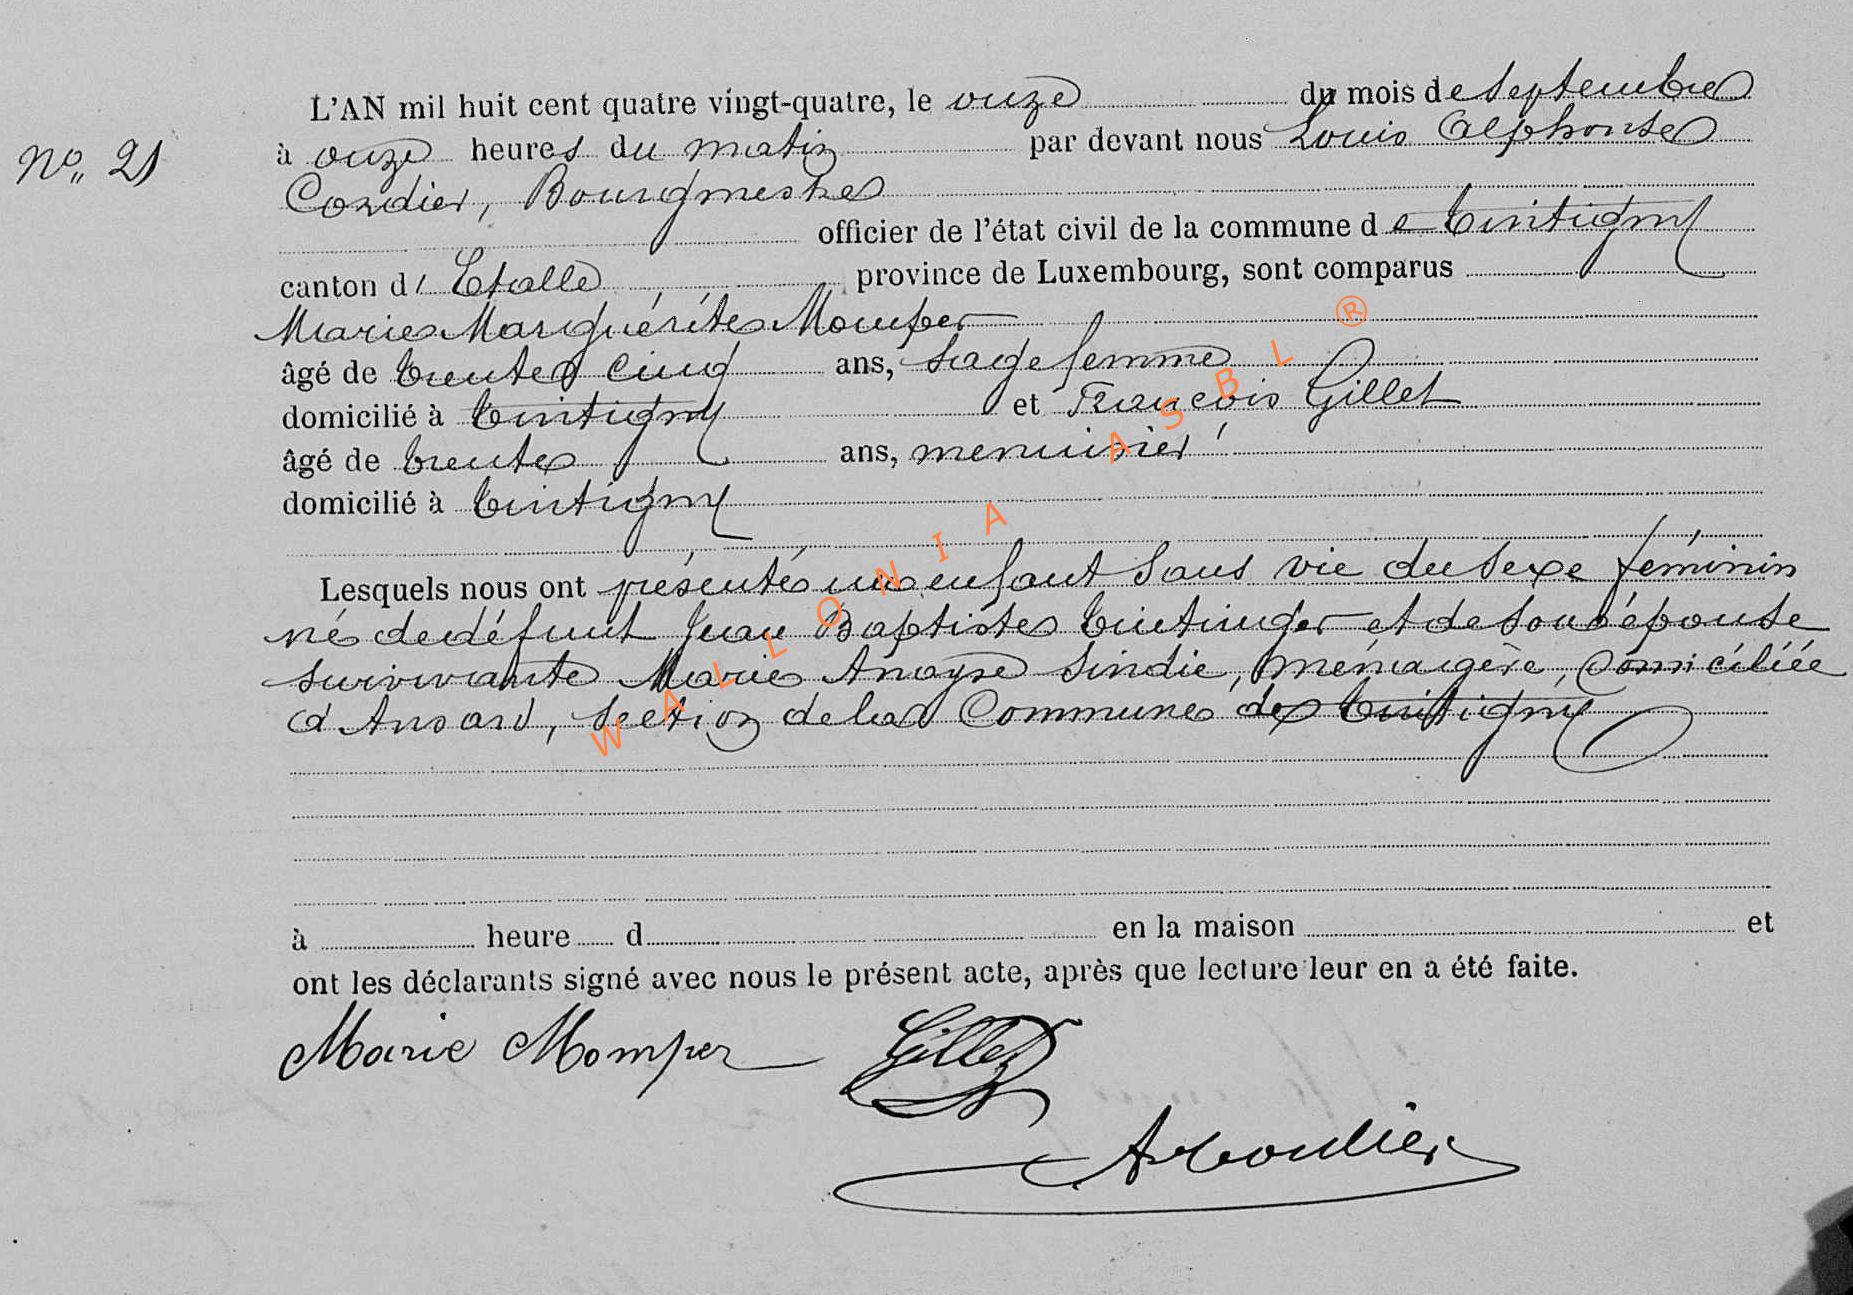 L'AN mil huit cent quatre vingt-quatre, le onze du mois de Septembre
No 21
à onze heures du matin par devant nous Louis Alphonse
Cordier, Bourgmestre
officier de l'état civil de la commune de Tintigny
canton d'Etalle province de Luxembourg, sont comparus
Marie Marguérite Momper
âgé de trente cinq ans, sage femme
domicilié à Tintigny et François Gillet
âgé de trente ans, menuisier
domicilié à Tintigny
Lesquels nous ont présenté un enfant sans vie du sexe féminin
né de défunt Jean Baptiste Tintinger et de son épouse
survivante Marie Sindic, ménagère, domiciliée
à Ansart, section de la Commune de Tintigny
à heure d en la maison et
ont les déclarants signé avec nous le présent acte, après que lecture leur en a été faite.
Marie Momper Gillet
A Cordier
WALLONIA ASBL ®